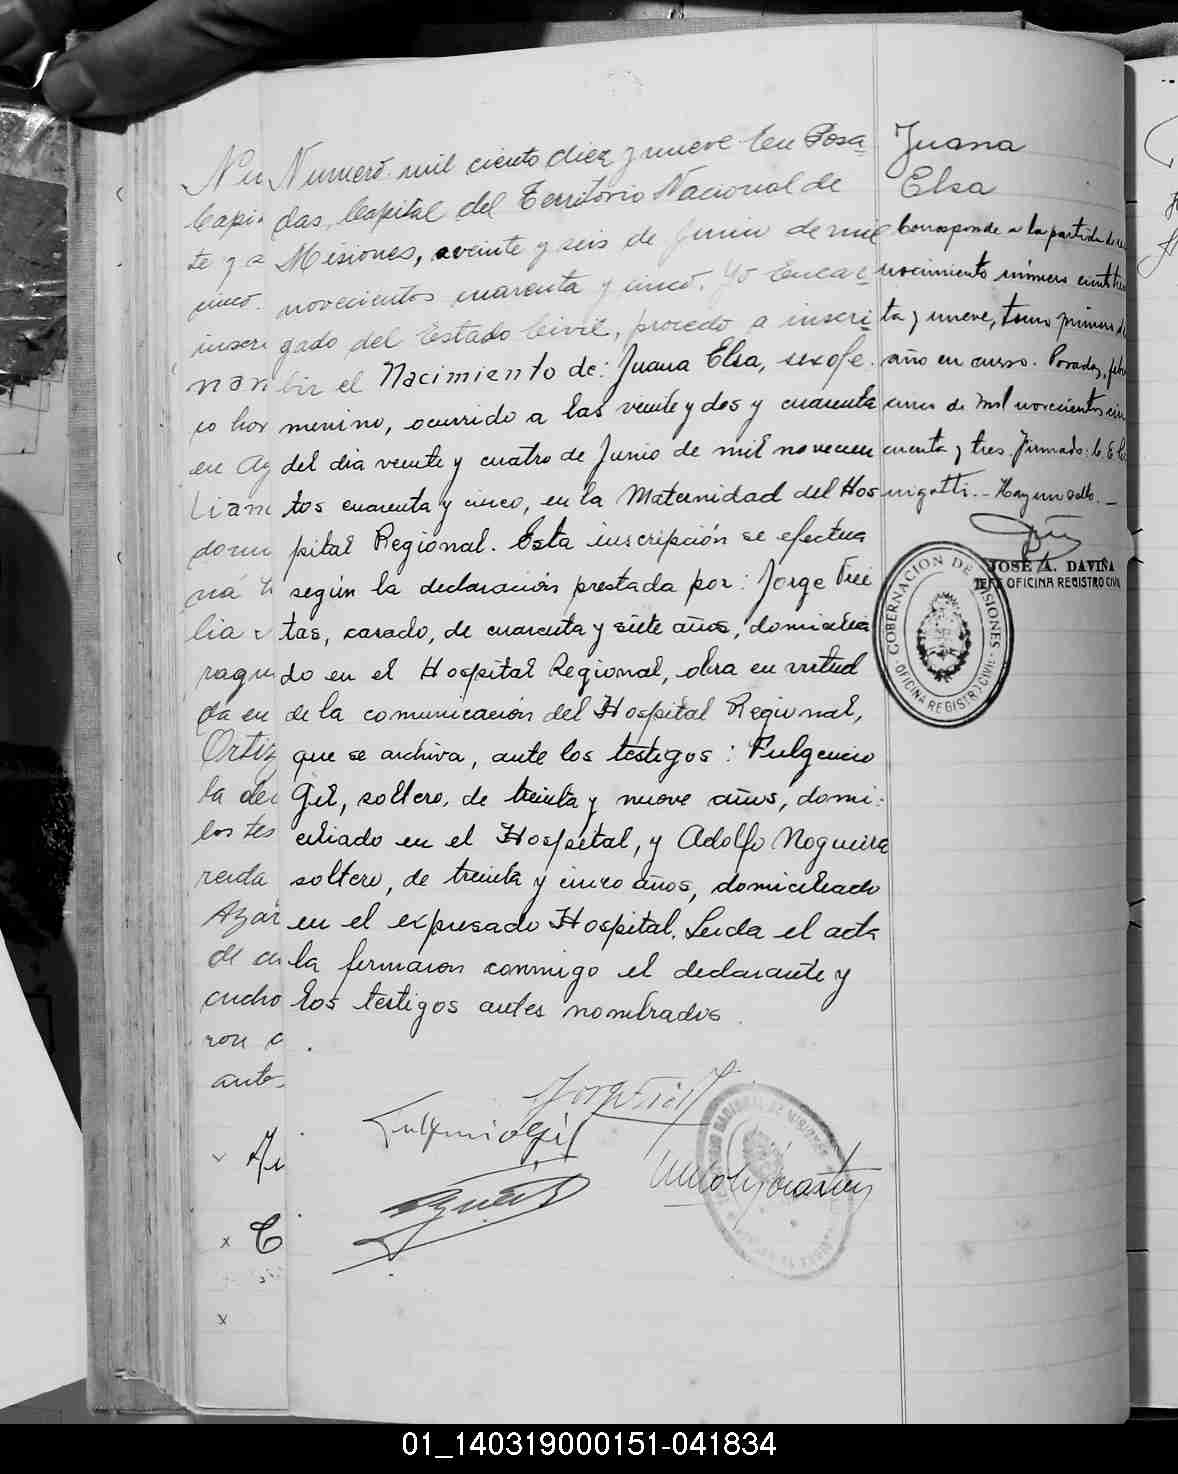 Numero mil ciento diez y nueve En Posa
das, Capital del Territorio Nacional de
Misiones, a veinte y seis de Junio de mil
novecientos cuarenta y cinco. Yo Encar
gado del Estado Civil, procedo a inscri
bir el Nacimiento de: Juana Elsa, sexo fe
menino, ocurrido a las veinte y dos y cuarenta
del dia veinte y cuatro de Junio de mil novecien
tos cuarenta y cinco, en la Maternidad del Hos
pital Regional. Esta inscripción se efectua
según la declaración prestada por: Jorge Frei
tas, casado, de cuarenta y siete años, domicilia
do en el Hospital Regional, obra en virtud
de la comunicación del Hospital Regional,
que se archiva, ante los testigos: Fulgencio
Gil, soltero, de treinta y nueve años, domi-
ciliado en el Hospital, y Adolfo Nogueira
soltero, de treinta y cinco años, domiciliado
en el expresado Hospital. Leida el acta
la firmaron conmigo el declarante y
los testigos antes nombrados.
Juana
Elsa
Corresponde a la partida de
nacimiento número
ta y nueve, tomo primero
año en curso. Posadas,
de Mil novecientos cin
cuenta y tres. Firmado:
Hay un sello.
JOSÉ A. DAVIÑA
JEFE OFICINA REGISTRO CIVIL
GOBERNACION DE MISIONES
OFICINA REGISTRO CIVIL
Nu
Capi
te y a
cinco.
inscri
nan
co hor
en Az
Lian
domi
ná
lia
ragu
da en
Ortiz
la de
los tes
reida
Azar
de
cucho
ron
ante
Fulgencio Gil
01_140319000151-041834